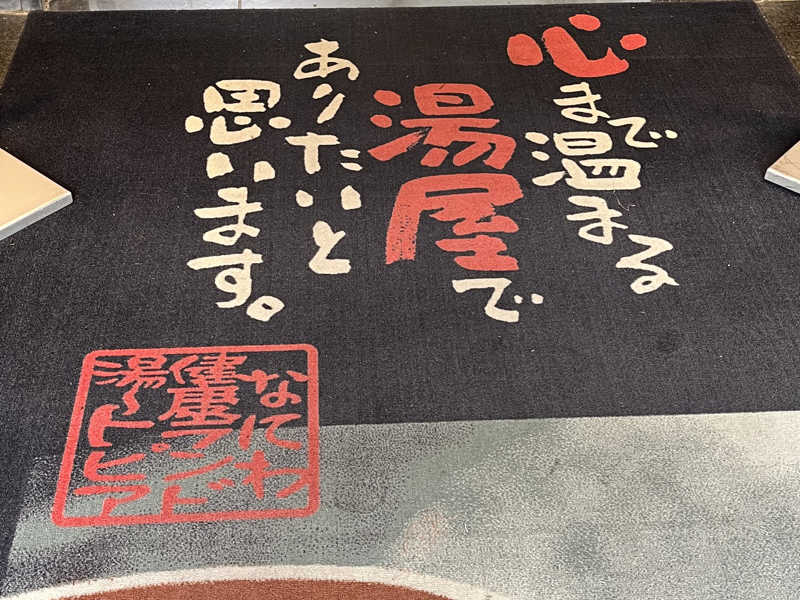 心まで温まる
湯屋で
ありたいと
思います。
なにわ
健康ランド
湯〜トピア